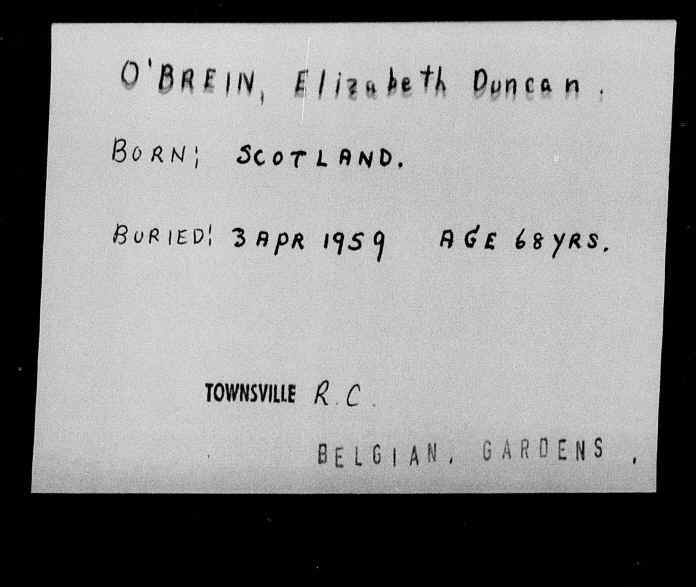 O'BREIN, Elizabeth Duncan.
BORN; SCOTLAND.
BURIED; 3 APR 1959 AGE 68 YRS.
TOWNSVILLE R.C.
BELGIAN. GARDENS.